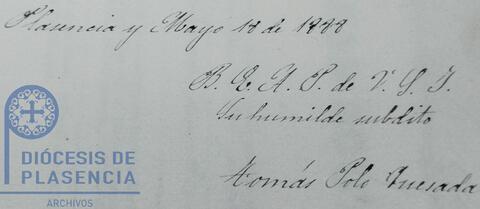 Plasencia y Mayo 18 de 1888
B. E. A. P. de V. S. I.
Su humilde subdito
Tomás Polo Quesada
DIÓCESIS DE
PLASENCIA
ARCHIVOS